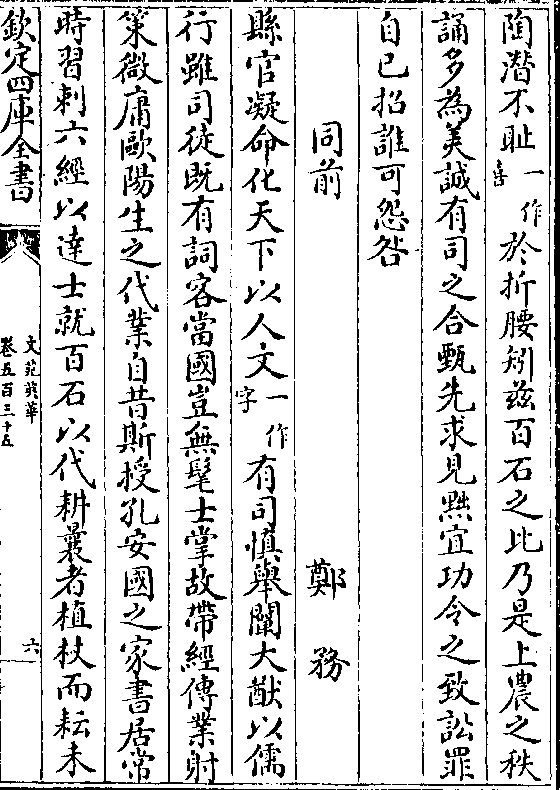 陶潛不耻一作喜於折腰矧兹百石之比乃是上農之秩
誦多為美誠有司之合甄先求見㸃宜功令之致訟罪
自已招誰可怨咎
同前 鄭務
縣官凝命化天下以人文一作字有司慎舉闡大猷以儒
行雖司徒既有詞客當國豈無髦士掌故帶經傳業射
策微庸歐陽生之代業自昔斯授孔安國之家書居常
時習剌六經以達士就百石以代耕曩者植杖而耘未
欽定四庫全書
文苑英華
卷五百三十五
六